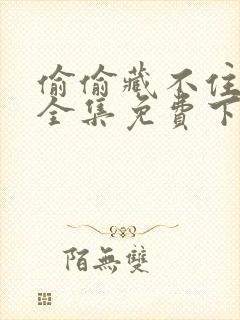 偷偷藏不住
全集免費下
陌無雙